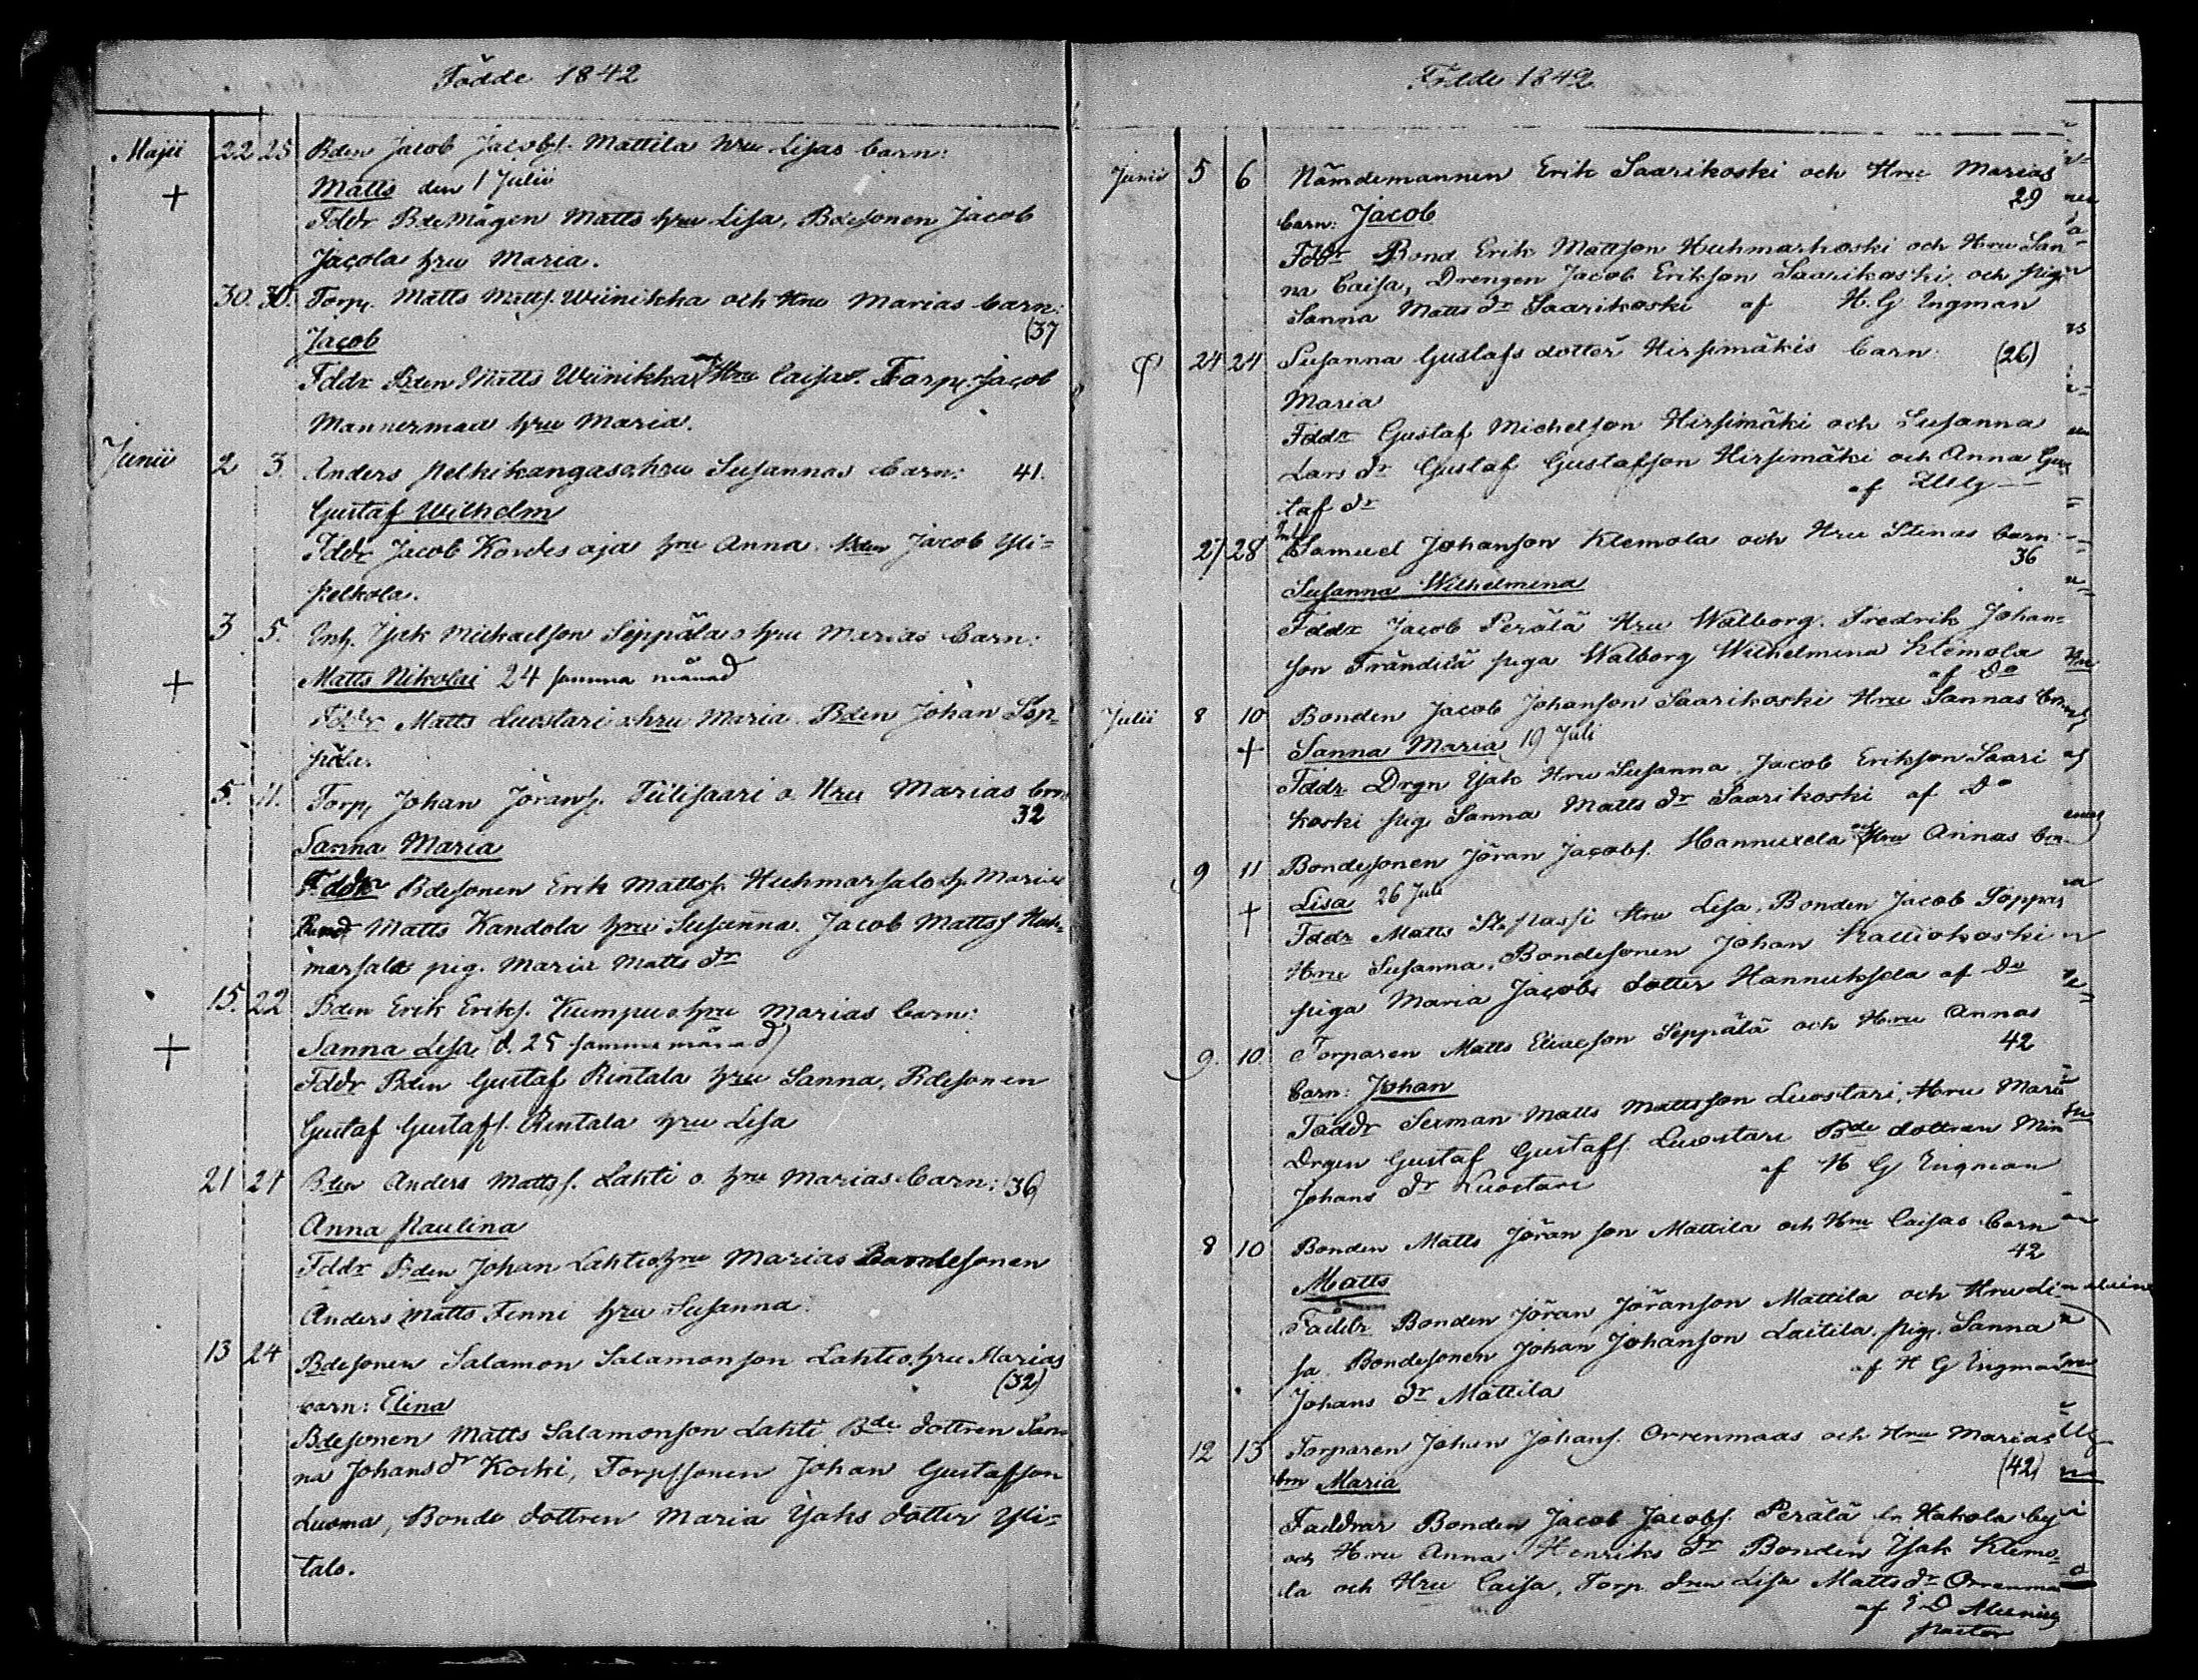 Födde 1842
Majii 22 25 Bden Jacob Jacobs. Mattila hru Lisas barn:
+ Matts den 1 Julii
Fddr Bdemågen Matts hru Lisa, Bdesonen Jacob
Jacola hru Maria.
30. 30. Torp. Matts Matts. Wiinikka och Hru Marias barn:
Jacob (37
Fddr Bden Matts Wiinikka och Hru Caisa. Torp. Jacob
Mannermaa hru Maria.
Junii 2 3. Anders Pelkikangas o hru Susannas barn: 41.
Gustaf Wilhelm
Fddr Jacob Kordesoja hru Anna. Bden Jacob Yli=
pelkola.
3 5. Inh. Isak Michaelson Seppälä o hru Marias barn:
+ Matts Nikolai 24 samma månad
Fddr Matts Luostari o hru Maria. Bden Johan Sep-
pälä.
5. 11. Torp. Johan Jörans. Tiilisaari o. Hru Marias brn
32
Sanna Maria
Fddr Bdesonen Erik Mattss. Huhmarsalo h. Maria
Bond Matts Kandola hru Susanna. Jacob Mattss Huh-
marsala pig. Maria Matts dr
15. 22 Bden Erik Eriks. Kumpu o. hru Marias barn:
+ Sanna Lisa (d. 25 samma månad)
Fddr Bden Gustaf Rintala hru Sanna, Bdesonen
Gustaf Gustafs. Rintala hru Lisa
21 24 Bden Anders Mattss. Lahti o. hru Marias barn: (36)
Anna Paulina
Fddr Bden Johan Lahti o. hru Marias Bondesonen
Anders Matts Finni hru Susanna.
13 24 Bdesonen Salamon Salamonson Lahti o. hru Marias
(32)
barn: Elina
Bdesonen Matts Salamonson Lahti Bde dottren San-
na Johans dr Koski, Torpssonen Johan Gustafson
Luoma, Bonde dottren Maria Isaks dotter Yli=
talo.
Födde 1842
Junii 5 6 Nämdemannen Erik Saarikoski och Hru Marias
29
barn: Jacob
Fddr Bond Erik Mattson Huhmarkoski och Hru San
na Caisa, Drengen Jacob Erikson Saarikoski och pig
Sanna Matts dr Saarikoski af H. G Ingman
24 24 Susanna Gustafs dotter Hirsimäkis barn: (26)
Maria
Fddr Gustaf Michelson Hirsimäki och Susanna
Lars dr Gustaf Gustafson Hirsimäki och Anna Gus
taf dr af
27 28 Inh Samuel Johanson Klemola och Hru Stinas barn
36
Susanna Wilhelmina
Fddr Jacob Perälä Hru Walborg. Fredrik Johan=
son Frändilä piga Walborg Wilhelmina Klemola
af Do
Julii 8 10 Bonden Jacob Johanson Saarikoski Hru Sannas brn
+ Sanna Maria 19 Juli
Fddr Drgn Isak Hru Susanna. Jacob Erikson Saari
koski pig Sanna Matts dr Saarikoski af Do
9 11 Bondesonen Jöran Jacobs. Hannuxela och Hru Annas brn
+ Lisa 26 Juli
Fddr Matts Hru Lisa, Bonden Jacob
Hru Susanna, Bondesonen Johan Kalliokoski
piga Maria Jacobs dotter Hannuksela af Do
9. 10 Torparen Matts Eliaeson Seppälä och Hru Annas
42
barn: Johan
Faddr Sexman Matts Mattsson Luostari, Hru Maria
Drgen Gustaf Gustafs. Luostari Bde dottren Min
Johans dr Luostari af H G Ingman
8 10 Bonden Matts Jöran son Mattila och Hru Caisas barn
42
Matts
Faddr Bonden Jöran Jöranson Mattila och Hru Li
sa. Bondesonen Johan Johanson Laitila. pig. Sanna
Johans dr Mattila af H G Ingman
12 13 Torparen Johan Johans. Orrenmaas och Hru Marias
(42)
brn Maria
Faddrar Bonden Jacob Jacobs. Perälä fr. Hakola by
och Hru Anna Henriks dr Bonden Isak Klemo-
la och Hru Caisa, Torp. dren Lisa Matts dr Orrenmaa
af Alcenius
Pastor